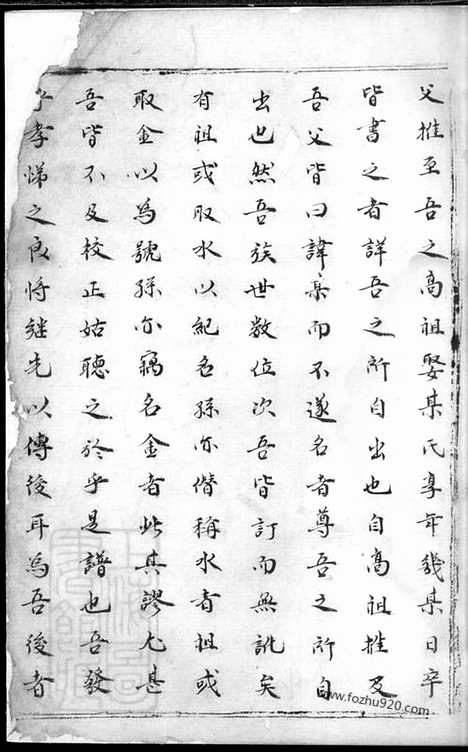 父推至吾之高祖娶某氏享年幾某日卒
皆書之者詳吾之所自出也自高祖推及
吾父皆曰諱某而不遂名者尊吾之所自
出也然吾族世数位次吾皆訂而無訛矣
有祖或取水以紀名孫亦僭稱水者祖或
取金以為號孫亦竊名金者此其謬尤甚
吾皆不及校正姑聽之於乎是譜也吾發
孝悌之良将継先以傳後耳為吾後者
www.fozhu920.com